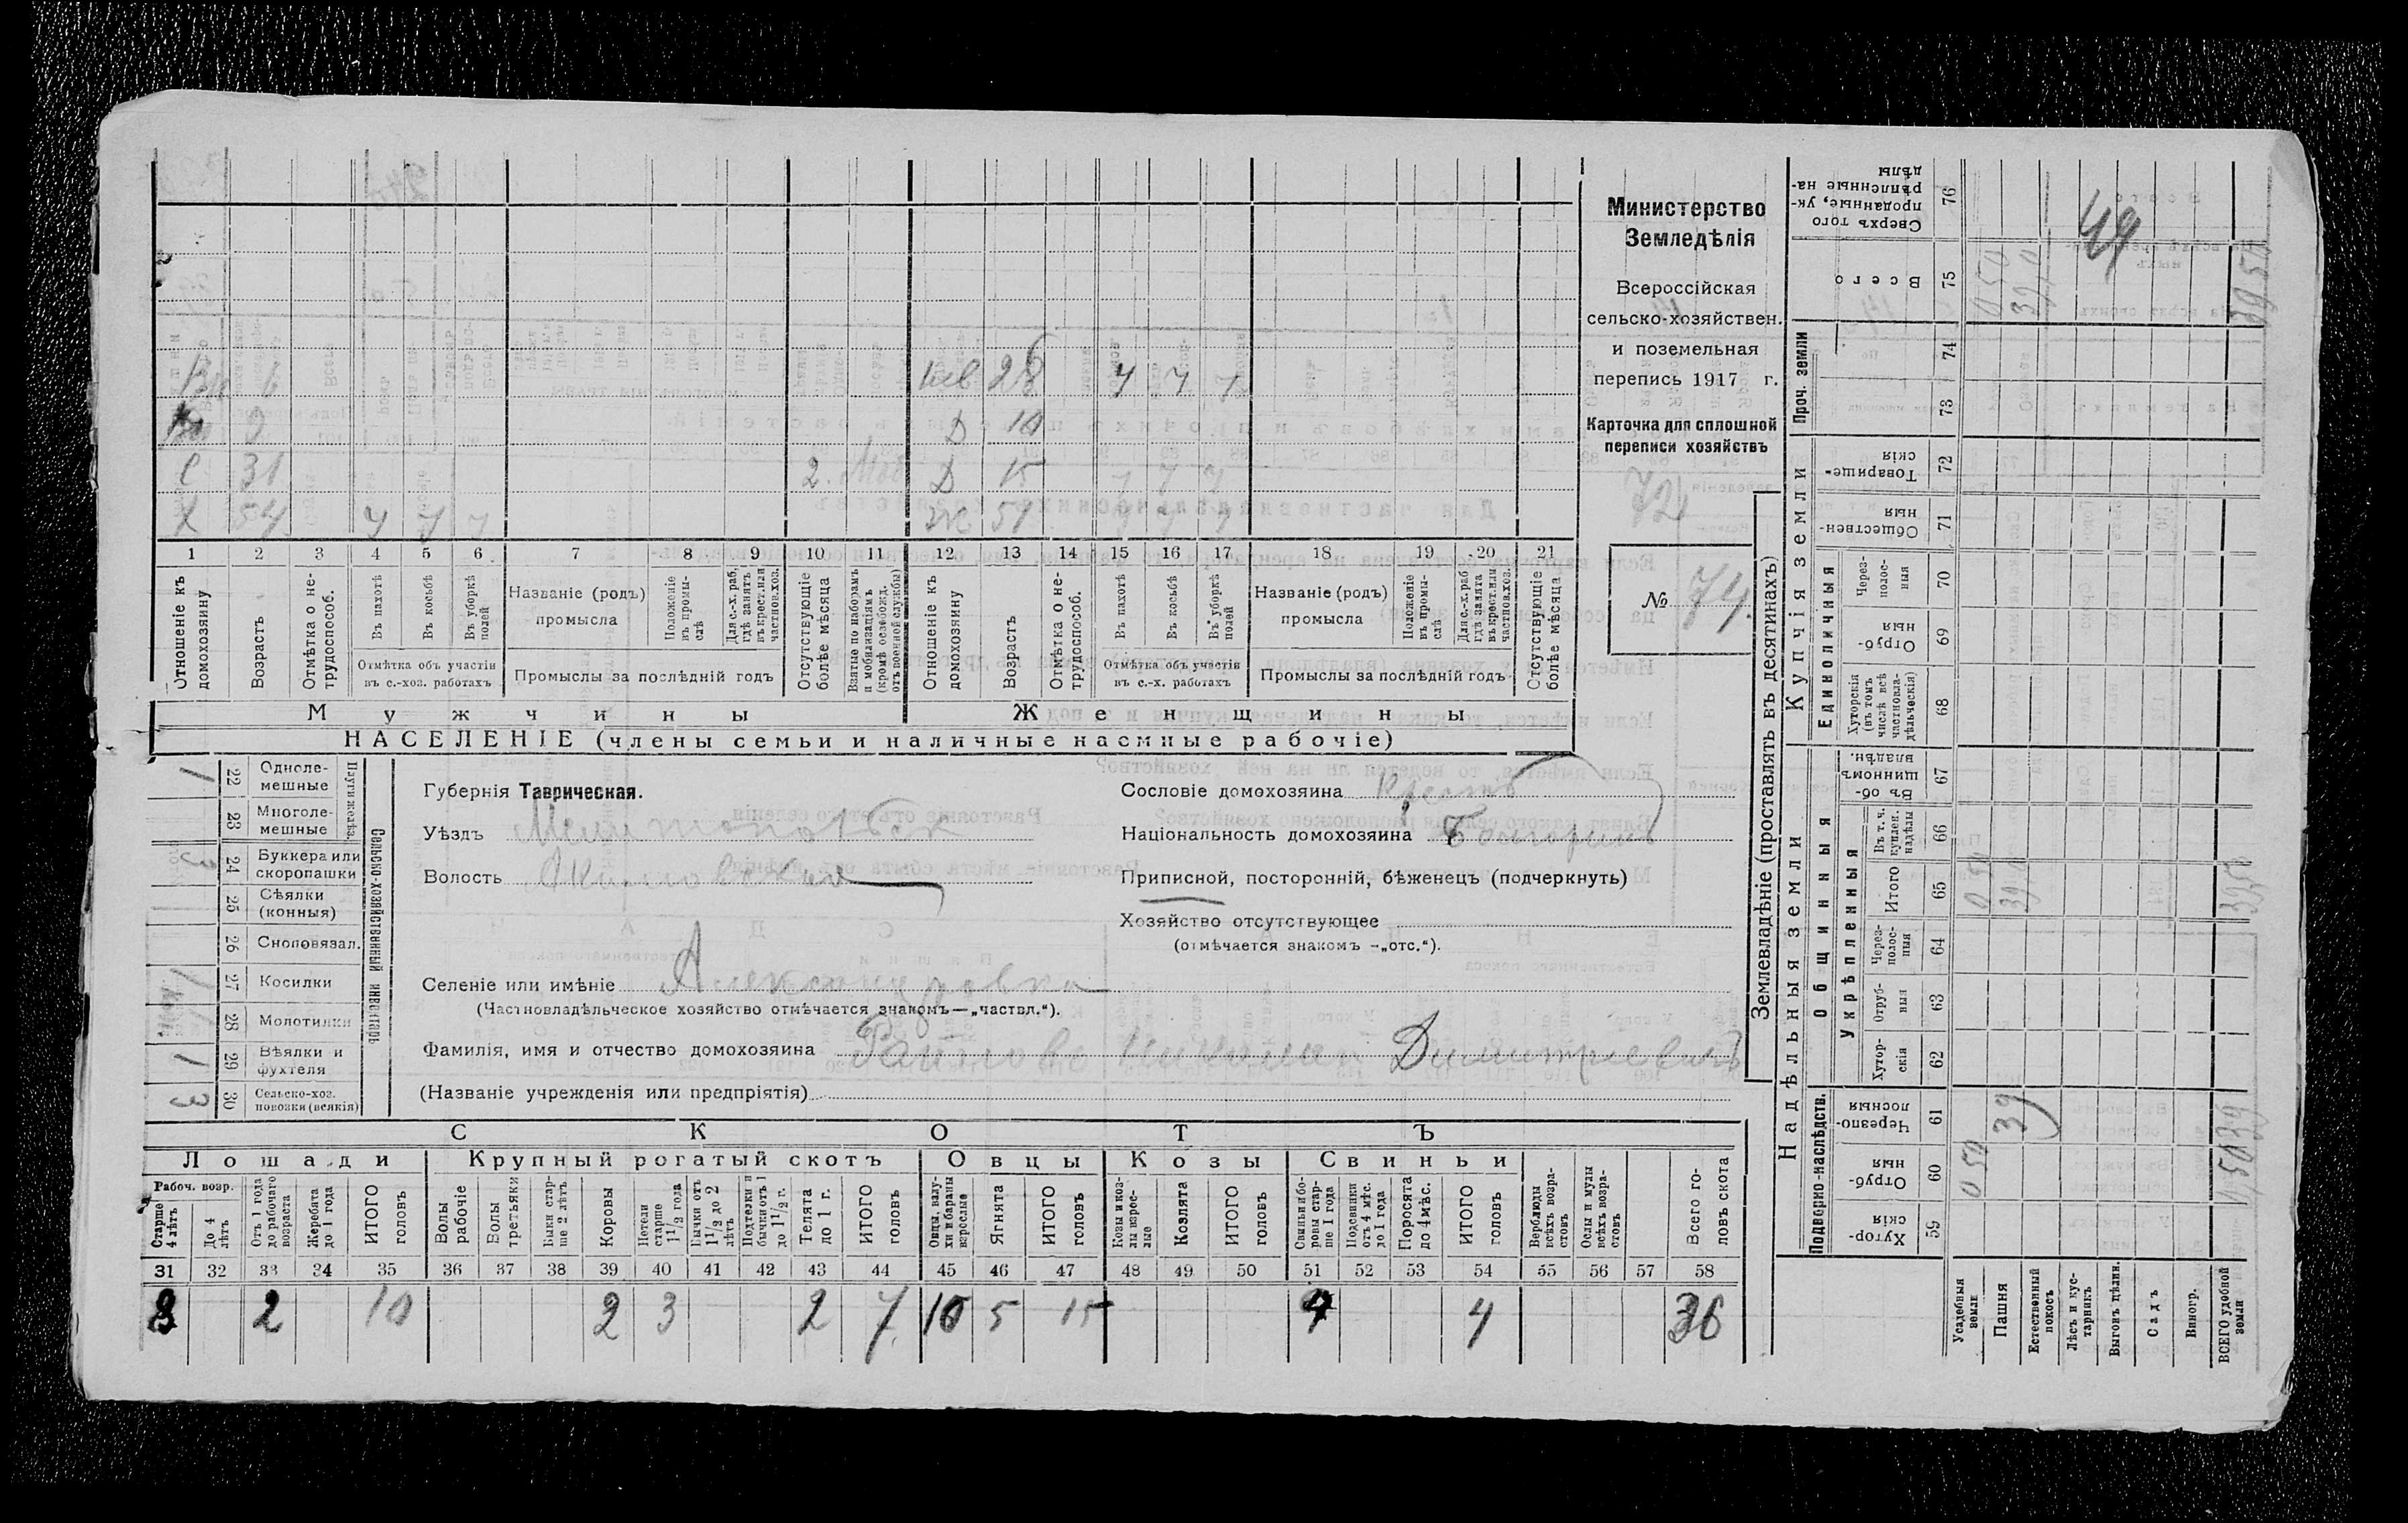 Министерство
Земледѣлія
Всероссійская
сельско-хозяйствен.
и поземельная
перепись 1917 г.
Карточка для сплошной
переписи хозяйствъ
72
№ 74.
Вн 6 Нев 28 ч ч ч
9 Д 10
С 31 2. Моб Д 15 ч ч ч
Х 54 ч ч ч Ж 51 ч ч ч
1 2 3 4 5 6 7 8 9 10 11 12 13 14 15 16 17 18 19 20 21
Отношеніе къ домохозяину
Возрастъ
Отмѣтка о нетрудоспособ.
Въ пахотѣ
Въ косьбѣ
Въ уборкѣ полей
Отмѣтка объ участіи
въ с.-хоз. работахъ
Названіе (родъ)
промысла
Положеніе въ промыслѣ
Для с.-х. раб. гдѣ занятъ въ крест. или частнов. хоз.
Промыслы за послѣдній годъ
Отсутствующіе болѣе мѣсяца
Взятые по наборамъ и мобилизаціямъ (кромѣ освобожд. отъ военной службы)
Отношеніе къ домохозяину
Возрастъ
Отмѣтка о нетрудоспособ.
Въ пахотѣ
Въ косьбѣ
Въ уборкѣ полей
Отмѣтка объ участіи
въ с.-х. работахъ
Названіе (родъ)
промысла
Положеніе въ промыслѣ
Для с.-х. раб гдѣ занята въ крест. или частнов. хоз.
Промыслы за послѣдній годъ
Отсутствующіе болѣе мѣсяца
Мужчины Женщины
НАСЕЛЕНІЕ (члены семьи и наличные наемные рабочіе)
Сельско-хозяйственный инвентарь
Плуги желѣз.
22 Однолемешные 1
23 Многолемешные
24 Буккера или скоропашки 3
25 Сѣялки (конныя)
26 Сноповязал.
27 Косилки 1
28 Молотилки
29 Вѣялки и фухтеля 1
30 Сельско-хоз. повозки (всякія) 3
Губернія Таврическая.
Уѣздъ Мелитопольск
Волость Акимовская
Сословіе домохозяина крест
Національность домохозяина Болгаринъ
Приписной, посторонній, бѣженецъ (подчеркнуть)
Хозяйство отсутствующее
(отмѣчается знакомъ -„отс.“).
Селеніе или имѣніе Александровка
(Частновладѣльческое хозяйство отмѣчается знакомъ—„частвл.“).
Фамилія, имя и отчество домохозяина Николай Димитріевичъ
(Названіе учрежденія или предпріятія)
СКОТЪ
Лошади Крупный рогатый скотъ Овцы Козы Свиньи
Рабоч. возр.
Старше 4 лѣтъ
До 4 лѣтъ
Отъ 1 года до рабочаго возраста
Жеребята до 1 года
ИТОГО головъ
Волы рабочіе
Волы третьяки
Быки старше 2 лѣтъ
Коровы
Нетели старше 1 1/2 года
Бычки отъ 1 1/2 до 2 лѣтъ
Подтелки и бычки отъ 1 до 1 1/2 г.
Телята до 1 г.
ИТОГО головъ
Овцы, валухи и бараны взрослые
Ягнята
ИТОГО головъ
Козы и козлы взрослые
Козлята
ИТОГО головъ
Свиньи и боровы старше 1 года
Подсвинки отъ 4 мѣс. до 1 года
Поросята до 4 мѣс.
ИТОГО головъ
Верблюды всѣхъ возрастовъ
Ослы и мулы всѣхъ возрастовъ
Всего головъ скота
31 32 33 34 35 36 37 38 39 40 41 42 43 44 45 46 47 48 49 50 51 52 53 54 55 56 57 58
8 2 10 2 3 2 7 10 5 15 4 4 36
Землевладѣніе (проставлять въ десятинахъ)
Надѣльныя земли Купчія земли Проч. земли
Подворно-наслѣдств. Общинныя Единоличныя
Укрѣпленныя
Хуторскія 59
Отрубныя 60
Черезполосныя 61
Хуторскія 62
Отрубныя 63
Черезполосныя 64
Итого 65
Въ т. ч. куплен. надѣлы 66
Въ общинномъ владѣн. 67
Хуторскія (въ томъ числѣ всѣ частновладѣльческія) 68
Отрубныя 69
Черезполосныя 70
Общественныя 71
Товарищескія 72
73
74
Всего 75
Сверхъ того проданные, укрѣпленные надѣлы 76
Усадебныя земли 0 50 0 50 0 50
Пашня 39 39 39
Естественный покосъ
Лѣсъ и кустарникъ
Выгонъ цѣлин.
Садъ
Виногр.
ВСЕГО удобной земли 39 50 39 50
49